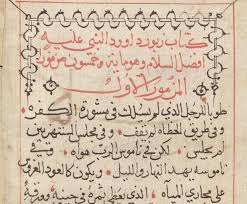 كتاب زبور داوود النبي عليه
افضل السلام وهو ماية وخمسون مزمور
المزمور الاول
طوبا للرجل الذي لم يسلك في مشورة الكفره
وفي طريق الخطاه لم يقف وفي مجلس المستهزيين
لم يجلس لكن في ناموس الرب هواه وفي
ناموسه يهذ النهار والليل ويكون كالعود المغروس
على مجاري المياه الذي يعطي ثمرته في حينه وورقه